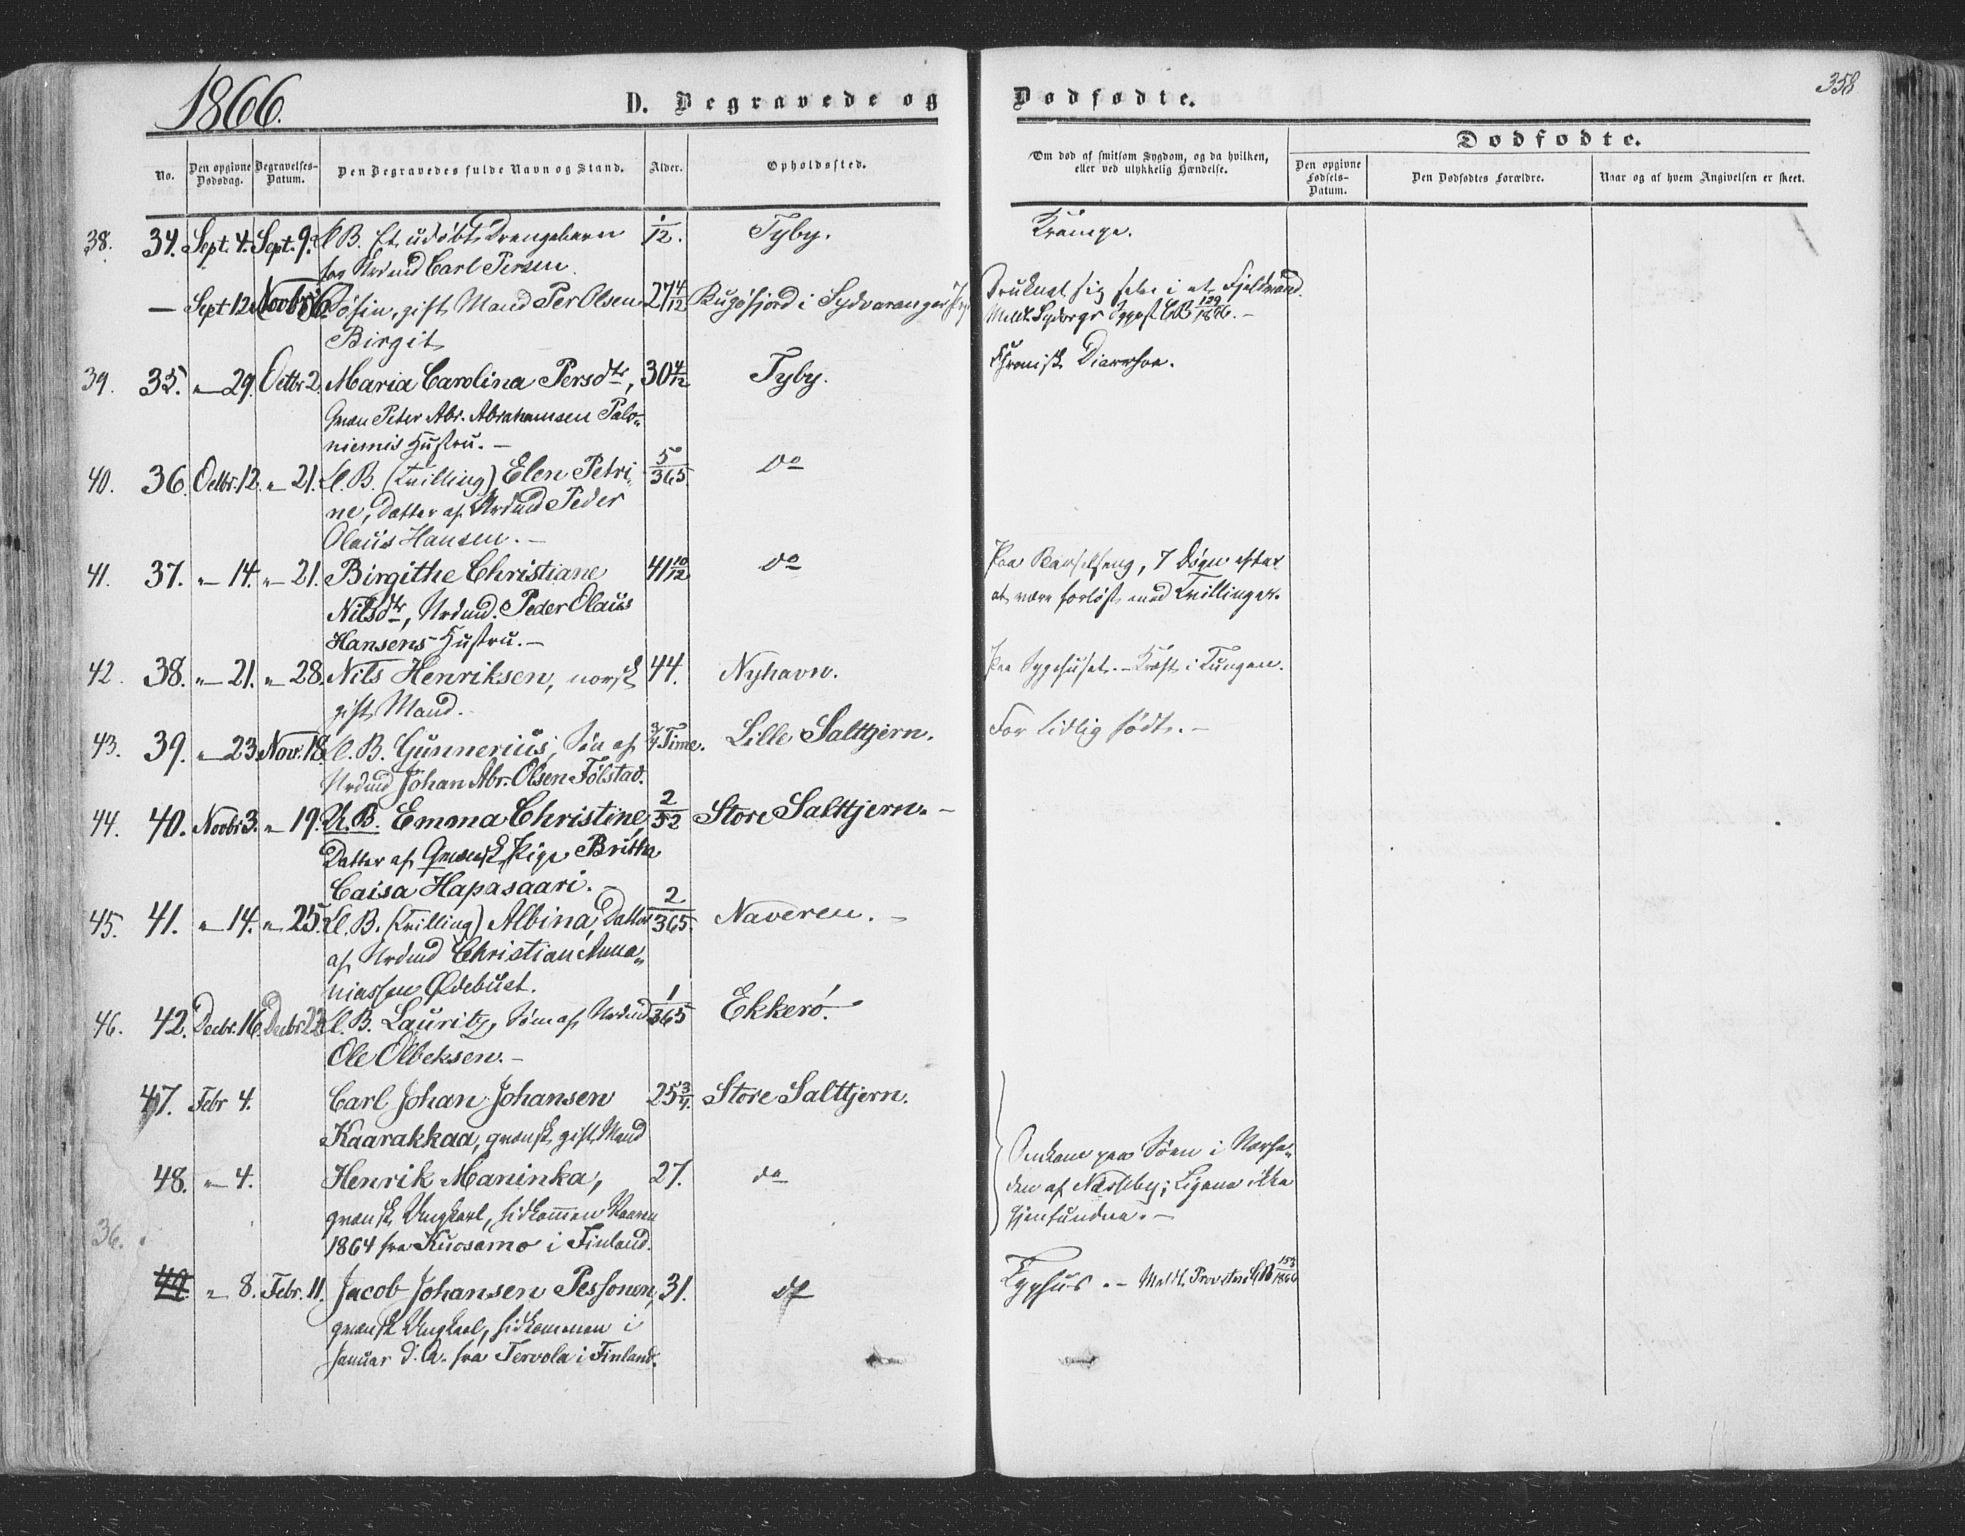 1866.
D. Begravede og
Dødfødte.
358
No.
Den opgivne Dødsdag.
Begravelses-Datum.
Den Begravedes fulde Navn og Stand.
Alder.
Opholdssted.
Om død af smitsom Sygdom, og da hvilken,
eller ved ulykkelig Hændelse.
Dødfødte.
Den opgivne Fødsels-Datum.
Den Dødfødtes Forældre.
Naar og af hvem Angivelsen er skeet.
38. 34. Sept. 4. Sept. 9. Et udøbt Drengebarn 1/12. Tyby. Krampe.
for Carl Persen.
— Sept 12 Novbr gift Mand Per Olsen 27 4/12 Bugøfjord i Sydvaranger Druknet sig selv i et Fjeldvand.
Birgit
39. 35. „ 29. Octbr 2. Maria Carolina Persdtr, 30 4/12 Tyby. Chronisk Diarrhoe.
Qvæn Peter Abr. Abrahamsen Palo-
niemis Hustru. —
40. 36. Octbr. 12. „ 21. B. (Tvilling) Elen Petri- 5/365 do
ne, Datter af Nrdmd Peder
Olaus Hansen. —
41. 37. „ 14. „ 21. Birgithe Christiane 41 10/12 do Paa Barselseng, 7 Døgn efter
Nilsdtr, Nrdmd. Peder Olaus at være forløst med Tvillinger.
Hansens Hustru. —
42. 38. „ 21. „ 28. Nils Henriksen, norsk 44. Nyhavn. Paa Sygehuset. — Kræft i Tungen.
gift Mand.
43. 39. „ 23. Nov. 18. B. Gunnerius, Søn af 3/4 Time. Lille Salttjern. For tidlig født. —
Nrdmd Johan Abr. Olsen Følstad.
44. 40. Novbr 3. „ 19. U. B. Emma Christine, 2/52 Store Salttjern. —
Datter af Qvænsk Pige Britha
Caisa Hapasaari.
45. 41. „ 14. „ 25. B. (Tvilling) Albina, Datter 2/365. Naveren. —
af Nrdmd Christian Anna-
niassen Ødebuct.
46. 42. Decbr. 16. Decbr. B. Lauritz, Søn af Nrdmd 1/365 Ekkerø.
Ole Olbeksen. —
47. Febr 4. Carl Johan Johansen 25 3/4. Store Salttjern.
Kaarakkaa, qvænsk gift Mand
48. „ 4. Henrik Maninka, 27. do Omkom paa Søen i Nærhe-
qvænsk Ungkarl, hidkommen Vaaren den af Næsseby; Ligene ikke
1864 fra Kuosamo i Finland. gjenfundne. —
36.
49. „ 8. Febr. 11. Jacob Johansen Pessonen, 31. do Typhus. — Meldt
qvænsk Ungkarl, hidkommen i
Januar d. A. fra Tervola i Finland.